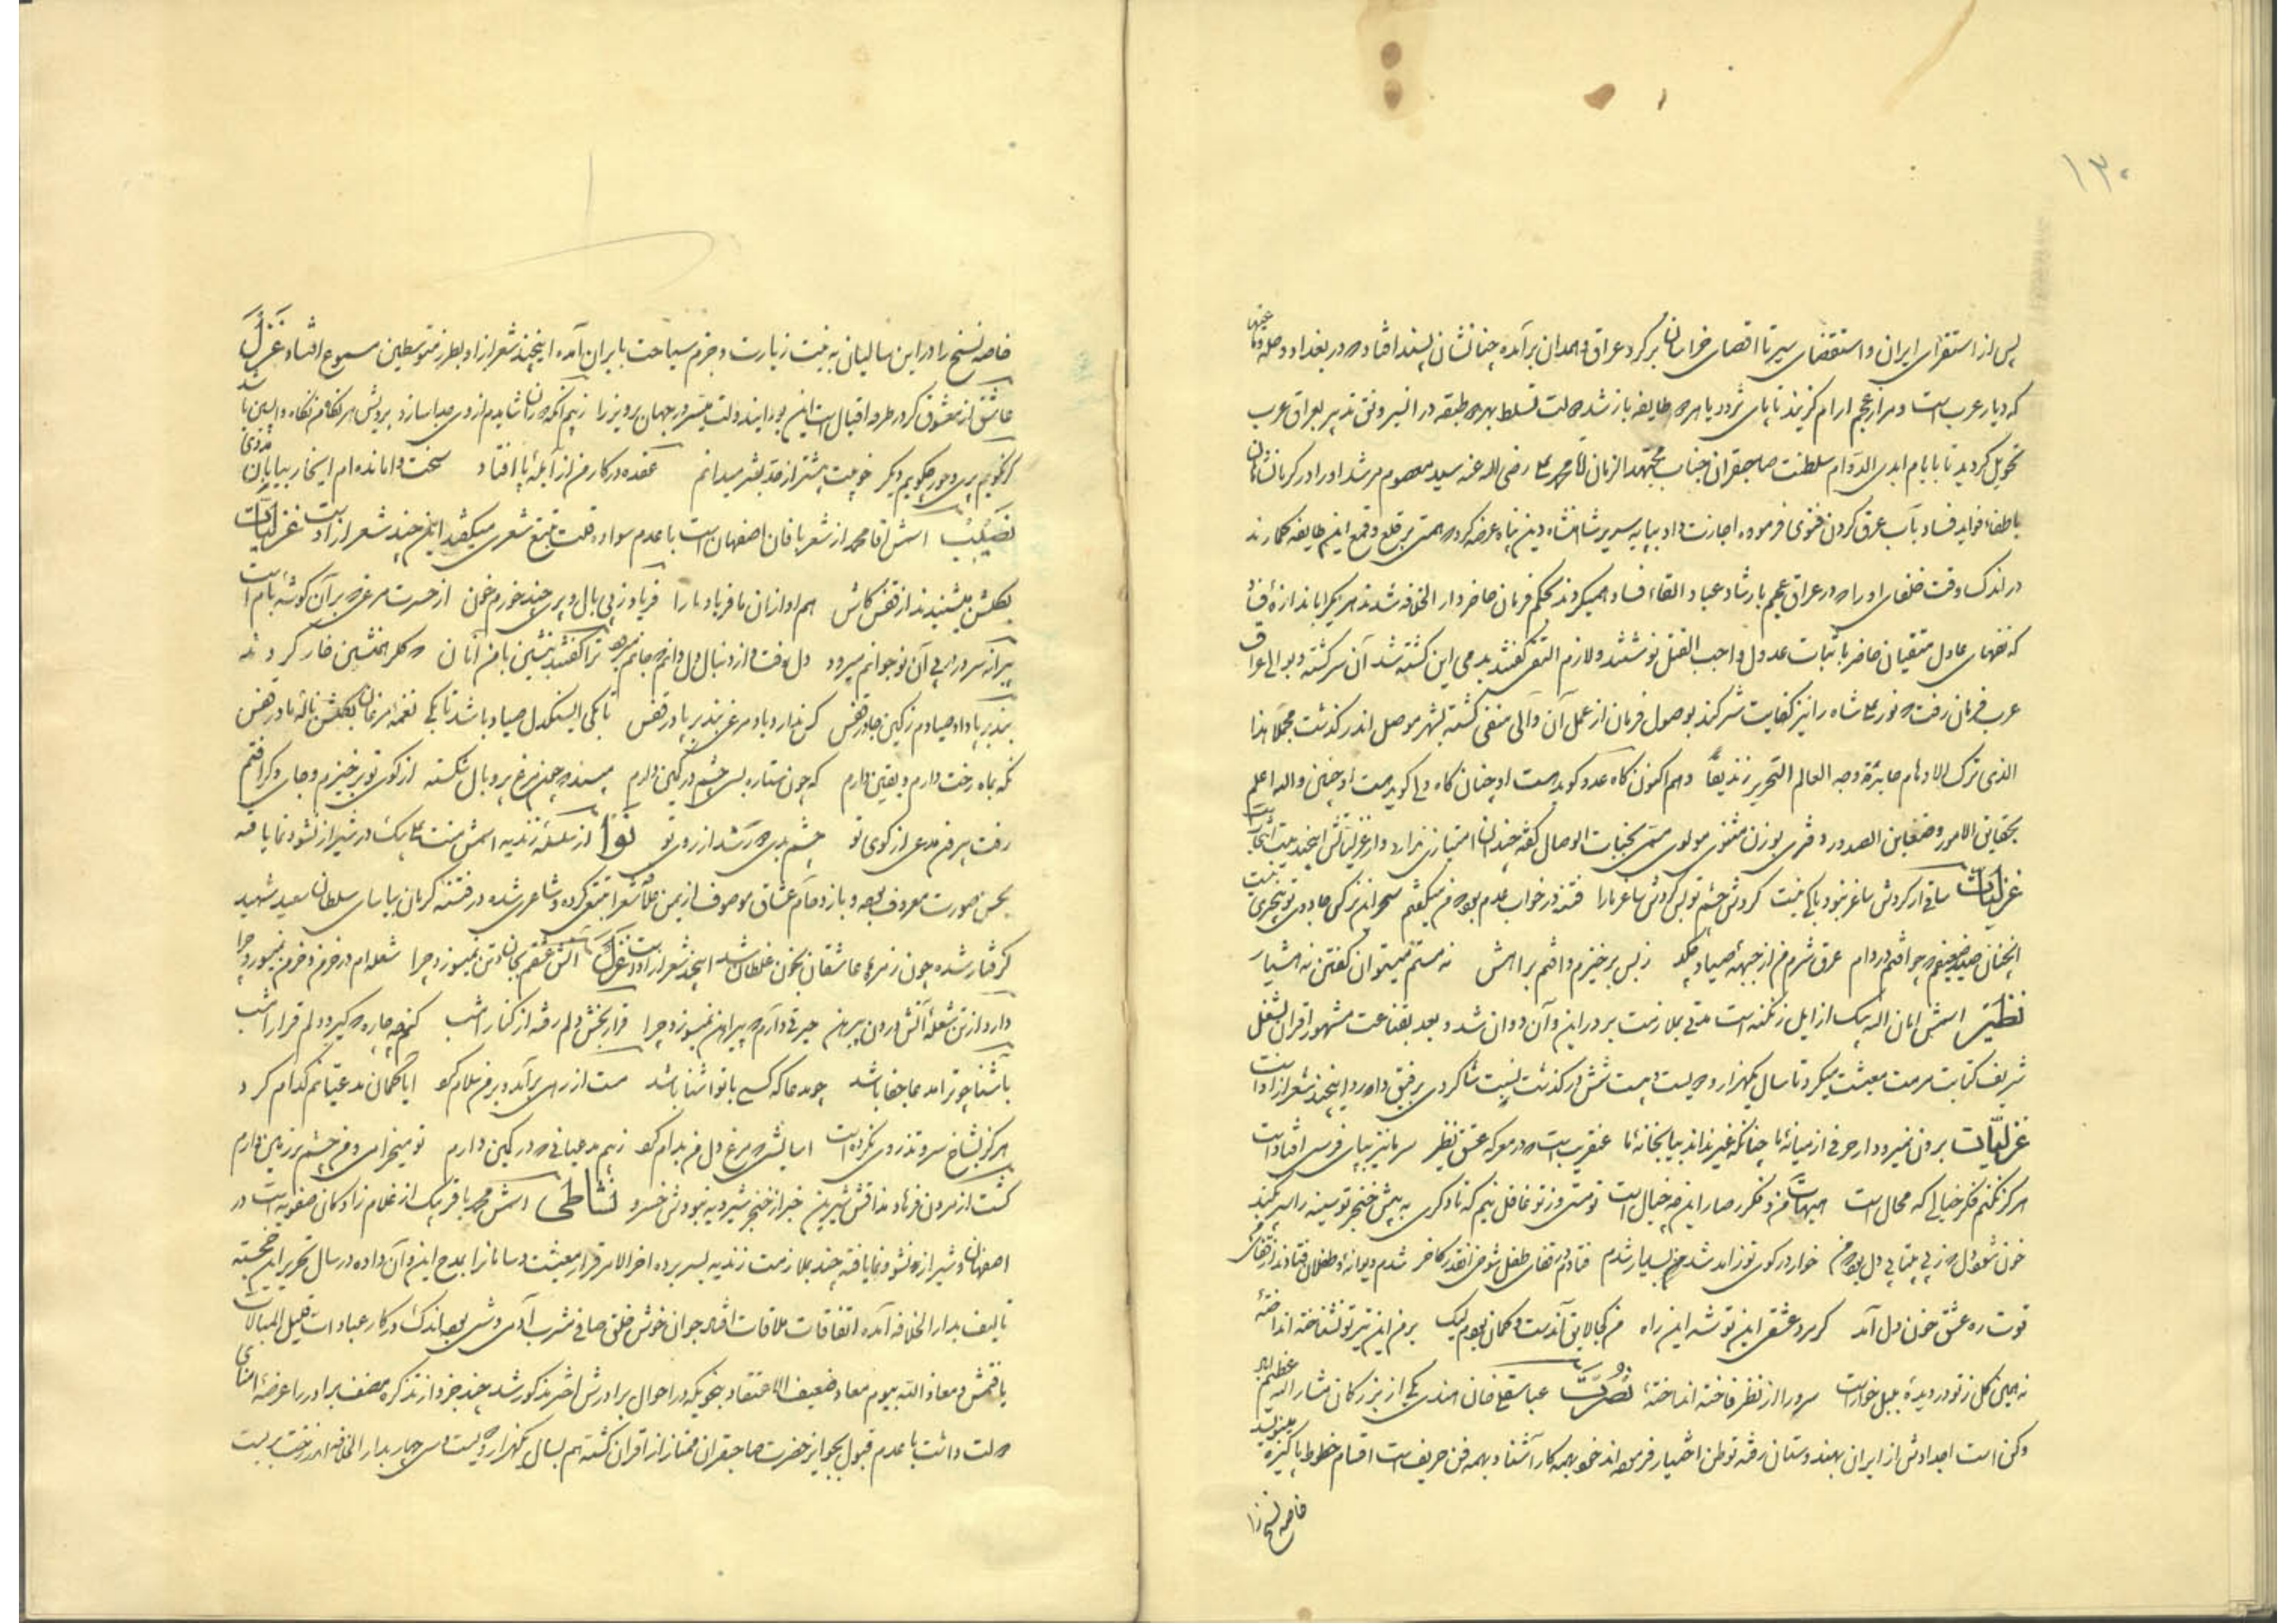 ۱۳۰
پس از استقرای ایران و استقصای سیر تا اقصای خراسان بر کرد عراق و همدان برآمده چنانشان پسند افتاده در بغداد و حله و
که دیار عرب است و مزار عجم ارام گزیند تا پای تردد با هر طایفه باز شده
تحویل گردید تا بایام ابدی الدوام سلطنت صاحبقران جناب مجتهد الزمان آقا محمد علی رضی الله عنه سید معصوم مرشد او را در کرمانشاهان
باطفاء فواید فساد بآب عرق کردن فتوی فرموده اجازت داد بپایه سریر شاهنشاه دین پناه عرضه کرده همت بر قلع و قمع این طایفه گمارند
در اندک وقت خلفای او را در عراق عجم بارشاد عباد القاء فساد همیکردند بحکم فرمان حاضر دار الخلافه شدند هر یک را باندازه
که فقهای عادل متقیان حاضر باثبات عدول واجب القتل نوشتند و لازم گفتند بدمی این کشته شد آن سرگشته و بوالی عراق
عرب فرمان رفت نور علی شاه را نیز کفایت شر کند بوصول فرمان از عمل آن والی منفی گشته بشهر موصل اندر گذشت مجملا هذا
الذی ترک الاوهام حایرة و جه العالم النحریر زندیقا و هم اکنون گاه عدو گوید مست او چنان گاه ولی گوید مست او چنین والله اعلم
بحقایق الامور و ضغاین الصدور دفتری بوزن مثنوی مولوی مسمی بجنات الوصال گفته چندان امتیازی ندارد و از غزلیاتش اینچند بیت
غزلیات ساقی ار گردش ساغر نبود باکی نیست گردش چشم تو بس گردش ساغر ما را فتنه در خواب عدم بود من میگفتم
انچنان صید ضعیفم چو افتم در دام عرق شرم من از جبهه صیاد چکد ز بس برخیزم و افتم براهش نه مستم میتوان گفتن نه هشیار
نظیر اسمش امان الله بیک از ایل زنگنه است مدتی بملازمت بر در این و آن دوان شد و بعد بقناعت مشهور اقران بشغل
شریف کتابت مرمت معیشت میکرد تا سال یکهزار و دویست و بیست شش در گذشت نسبت شاگردی برفیق داده بود اینچند شعر از او است
غزلیات برون نمیرود از حرفی از میانه ما چنانکه غیر نداند بیا بخانه ما عنقریب است در معرکه عشق نظیر سر ما نیز بپای فرسی افتاد است
هرگز نکنم فکر خیالی که محال است هیهات من و فکر رصار این چه خیال است تو مستی و ز تو غافل نیم که تا دگری به پیش خنجر تو سینه را سپر نکند
خون شو ای دل ز بیتابی دل خوار در کوی تو زاند شدن بسیار شدم فتادم در قفای طفل شوخی انقدر کاخر شدم دیوانه و طفلان فتادند از قفای
قوت ره عشق خون دل آمد گر مرد عشقی این توشه این راه من کجا لایق آندست و کمان بودم لیک بر من این تیر تو نشناخته انداخته
نه همین گل ز تو در دیده بلبل خوار است سرو را از نظر فاخته انداخته نصرت عباسقلی خان هندی یکی از بزرگان مشار الیه
دکن است اجدادش از ایران بهندوستان رفته توطن اختیار فرموده اند خود بهمه کار آشنا و بهمه فن حریف است اقسام خطوط پاکیزه مینویسد
خاصه نسخ را
خاصه نسخ را در این سالیان به نیت زیارت و جزم سیاحت بایران آمده اینچند شعر از او بطرز متوسطین مسموع افتاد غزل
عاشق از معشوق گر در طره اقبال است این بود ایند ولت میسر در جهان پرویز را
گر نگویم پری و حور چگویم دیگر خوبیت بیشتر از حد بشر میدانم عقده در کار من از آبله پا افتاد سخت وامانده ام اینخار بیابان مددی
نصیب اسمش آقا محمد از شعربافان اصفهان است با عدم سواد و قلت تتبع شعری میگفته این چند شعر از او است غزلیات
بگلشن میشنیدند از قفس کاش هم اوازان ما فریاد ما را فریاد ز بی بال و پری چند خورم خون از حسرت مرغی بر آن گوشه بام است
پیرانه سر در پی آن نوجوانم میرود دل برفت و از دنبال دل دانم جانم میرود ترا گفتند بنشین با من آنان گلرا همنشین خار کردند
بند بر پا داد صیادم ز کین جا در قفس کس ندارد یاد مرغی بند بر پا در قفس تا یکی ایسنگدل صیاد باشد تا بکی نغمه مرغان بگلشن ناله ما در قفس
نگه بماه رخت دارم و یقین دارم که چون ستاره بسی چشم در کمین دارم مپسند چو من مرغ پر و بال شکسته از کوی تو برخیزم و جای دگر افتم
رفت بر من مدعی از کوی تو چشم بدی دور شد از روی تو نوا از سلسله زندیه اسمش منت علی بیک در شیراز نشو و نما یافته
بحسن صورت معروف بوده و بازدحام عشاق موصوف از یمن شعرا تتبعی کرده و شاعری شده در فتنه کرمان بیاسای سلطان سعید شهید
گرفتار شده چون زمره عاشقان بخون غلطان شد اینچند شعر از او است غزل آتش عشقم بجان و تن نمیسوزد چرا شعله ام در خرمن و خرمن نمیسوزد چرا
دارد از تن شعله آتش درون پیرهن حیرتی دارم پیراهن نمیسوزد چرا قرار بخش دلم رفته از کنار امشب کنم چه چاره گیرد دلم قرار امشب
باشنا چو ترا مدعا جفا باشد چه مدعا که کسی با تو اشنا باشد مست از رهی برآمد و بر من سلام کرد ایا گمان مدعیانم کدام کرد
هرگز بشاخ سرو تذروی نکرده است اسایشی مرغ دل من بدام کرد ز بیم مدعیانی در کمین دارم تو میخرامی و من چشم بر زمین دارم
گشت از مردن فرهاد مذاقش شیرین خبر از خنجر شیرویه نبودش خسرو نشاطی اسمش محمد باقر بیک از غلام زادگان صفویه است در
اصفهان و شیراز نشو و نما یافته چند بملازمت زندیه بسر برده اخر الامر قرار معیشت و سامانرا بمدح این و آن داده در سال تحریر این خجسته
تالیف بدار الخلافه آمده اتفاقات ملاقات افتاد جوان خوش خلق صافی مشرب آدمی وشی بود اندک در کار عبادات قلیل المبالات
یافتمش و معاذ الله بیوم معاد ضعیف الاعتقاد بنحویکه در احوال برادرش اختر مذکور شد چند جزو از تذکره مصنف برادر را عرضه امنای
دولت داشت با عدم قبول بجوایز حضرت صاحبقران ممتاز از اقران گشته هم بسال یکهزار و دویست و سی چهار بدار الخلافه اندر رخت بر بست